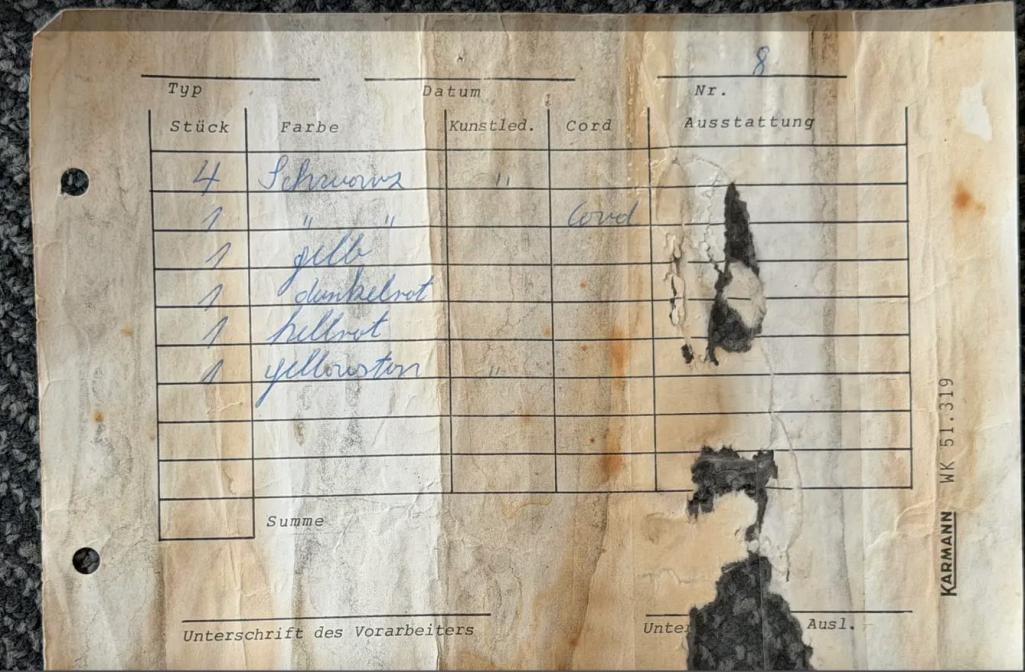 8
Typ Datum Nr.
Stück Farbe Kunstled. Cord Ausstattung
4 Schwarz "
1 " " Cord
1 gelb
1 dunkelrot
1 hellrot
1 yellowston "
Summe
Unterschrift des Vorarbeiters Unter Ausl.
KARMANN WK 51.319